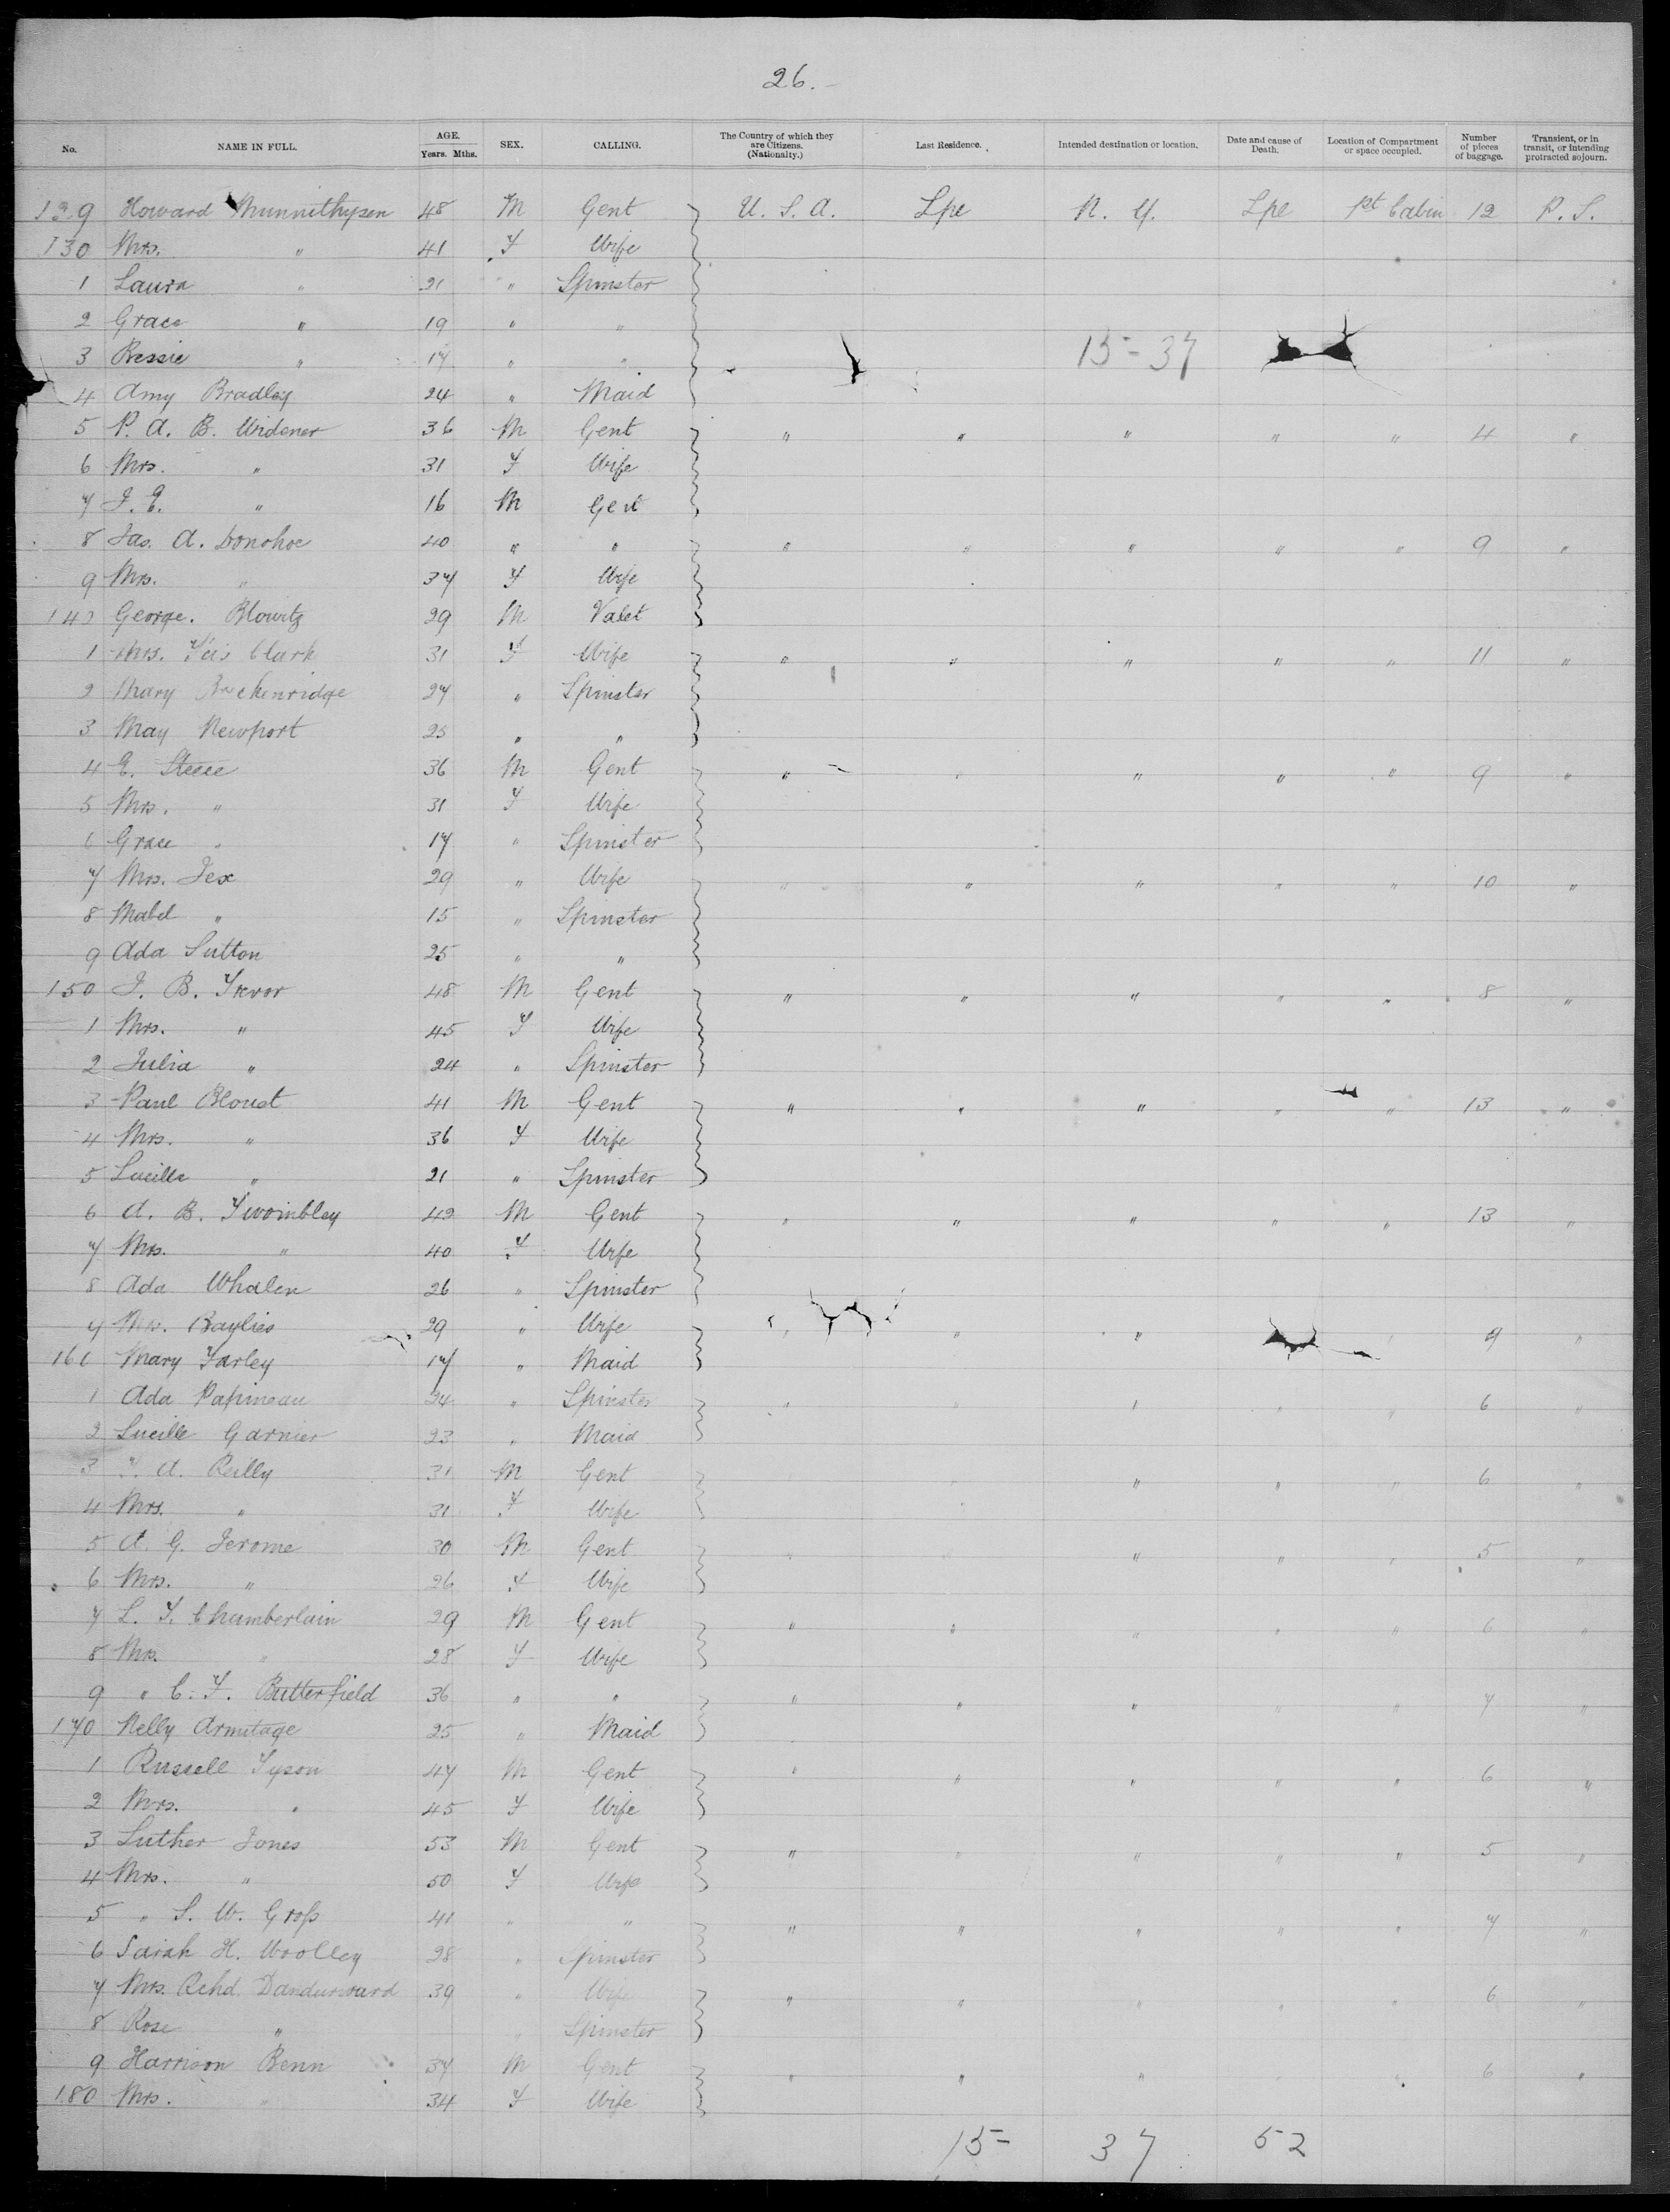 26.-
No. NAME IN FULL. AGE. Years. Mths. SEX. CALLING. The Country of which they are Citizens. (Nationality.) Last Residence. Intended destination or location. Date and cause of Death. Location of Compartment or space occupied. Number of pieces of baggage. Transient, or in transit, or intending protracted sojourn.
129 Howard Munnithysen 48 M Gent U. S. A. Lpe N. Y. Lpe 1st Cabin 12 P. S.
130 Mrs. " 41 F Wife
1 Laura " 21 " Spinster
2 Grace " 19 " "
3 Bessie " 17 " " 15-37
4 Amy Bradley 24 " Maid
5 P. A. B. Widener 36 M Gent " " " " " 4 "
6 Mrs. " 31 F Wife
7 J. E. " 16 M Gent
8 Jas. A. Donohoe 40 " " " " " " " 9 "
9 Mrs. " 37 F Wife
140 George. Blowitz 29 M Valet
1 Mrs. Clark 31 F Wife " " " " " 11 "
2 Mary Brechenridge 27 " Spinster
3 May Newport 25 " "
4 E. Steese 36 M Gent " " " " " 9 "
5 Mrs. " 31 F Wife
6 Grace " 17 " Spinster
7 Mrs. Jex 29 " Wife " " " " " 10 "
8 Mabel " 15 " Spinster
9 Ada Sutton 25 " "
150 J. B. Trevor 48 M Gent " " " " " 8 "
1 Mrs. " 45 F Wife
2 Julia " 24 " Spinster
3 Paul Bloust 41 M Gent " " " " " 13 "
4 Mrs. " 36 F Wife
5 Lucille " 21 " Spinster
6 A. B. Twombley 42 M Gent " " " " " 13 "
7 Mrs. " 40 F Wife
8 Ada Whalen 26 " Spinster
9 Mrs. Baylies 29 " Wife " " " " 9 "
160 Mary Farley 17 " Maid
1 Ada Papineau 24 " Spinster " " " " 6 "
2 Lucille Garnier 23 " Maid
3 T. A. Reilly 31 M Gent " " " 6 "
4 Mrs. " 31 F Wife
5 A. G. Jerome 30 M Gent " " " " 5 "
6 Mrs. " 26 F Wife
7 L. T. Chamberlain 29 M Gent " " " " " 6 "
8 Mrs. " 28 F Wife
9 " C. F. Butterfield 36 " " " " " " " 7 "
170 Nelly Armitage 25 " Maid
1 Russell Tyson 47 M Gent " " " " " 6 "
2 Mrs. " 45 F Wife
3 Luther Jones 53 M Gent " " " " " 5 "
4 Mrs. " 50 F Wife
5 " S. W. Gross 41 " " " " " " " 7 "
6 Sarah H. Woolley 28 " Spinster
7 Mrs. Rchd Dandurward 39 " Wife " " " " " 6 "
8 Rose " " Spinster
9 Harrison Benn 37 M Gent " " " " " 6 "
180 Mrs. " 34 F Wife
15- 37 52